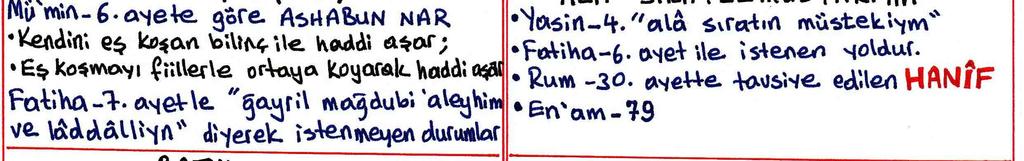 Mü'min-6. ayete göre ASHABUN NAR
•Kendini eş koşan bilinç ile haddi aşar;
•Eş koşmayı fiillerle ortaya koyarak haddi aşar
Fatiha-7. ayetle "ğayril mağdubi 'aleyhim
ve lâddâlliyn" diyerek istenmeyen durumlar
•Yasin-4. "alâ sıratın müstekiym"
•Fatiha-6. ayet ile istenen yoldur.
•Rum -30. ayette tavsiye edilen HANÎF
•En'am-79